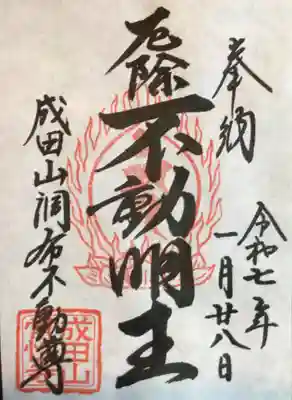 奉納
令和七年
一月廿八日
厄除
不動明王
成田山調布不動尊
成田山